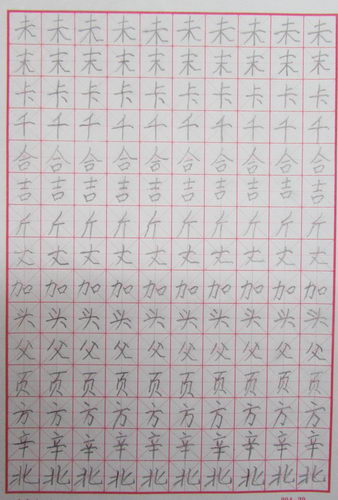 未未未未未未未未未未
末末末末末末末末末末
卡卡卡卡卡卡卡卡卡卡
千千千千千千千千千千
合合合合合合合合合合
吉吉吉吉吉吉吉吉吉吉
斤斤斤斤斤斤斤斤斤斤
丈丈丈丈丈丈丈丈丈丈
加加加加加加加加加加
头头头头头头头头头头
父父父父父父父父父父
页页页页页页页页页页
方方方方方方方方方方
辛辛辛辛辛辛辛辛辛辛
北北北北北北北北北北